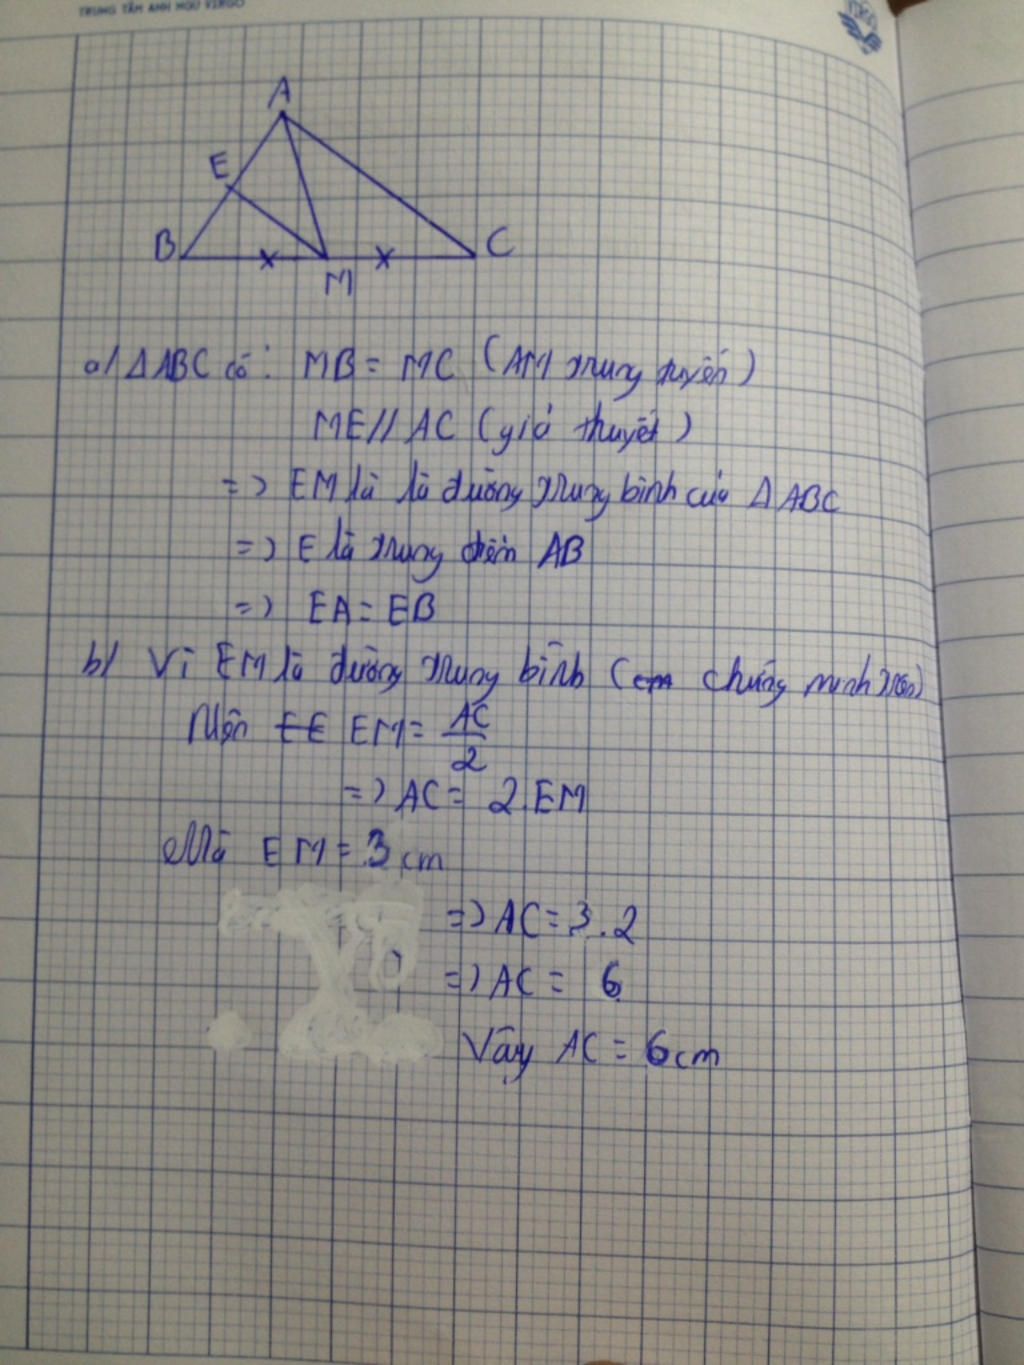 TRUNG TÂM ANH NGỮ VIRGO
A
E
B
C
M
a/ ΔABC có: MB = MC (AM trung tuyến)
ME // AC (giả thuyết)
=> EM là là đường trung bình của ΔABC
=> E là trung điểm AB
=> EA = EB
b/ Vì EM là đường trung bình (cm chứng minh trên)
Nên EM = AC/2
=> AC = 2.EM
Mà EM = 3cm
=> AC = 3.2
=> AC = 6
Vậy AC = 6cm